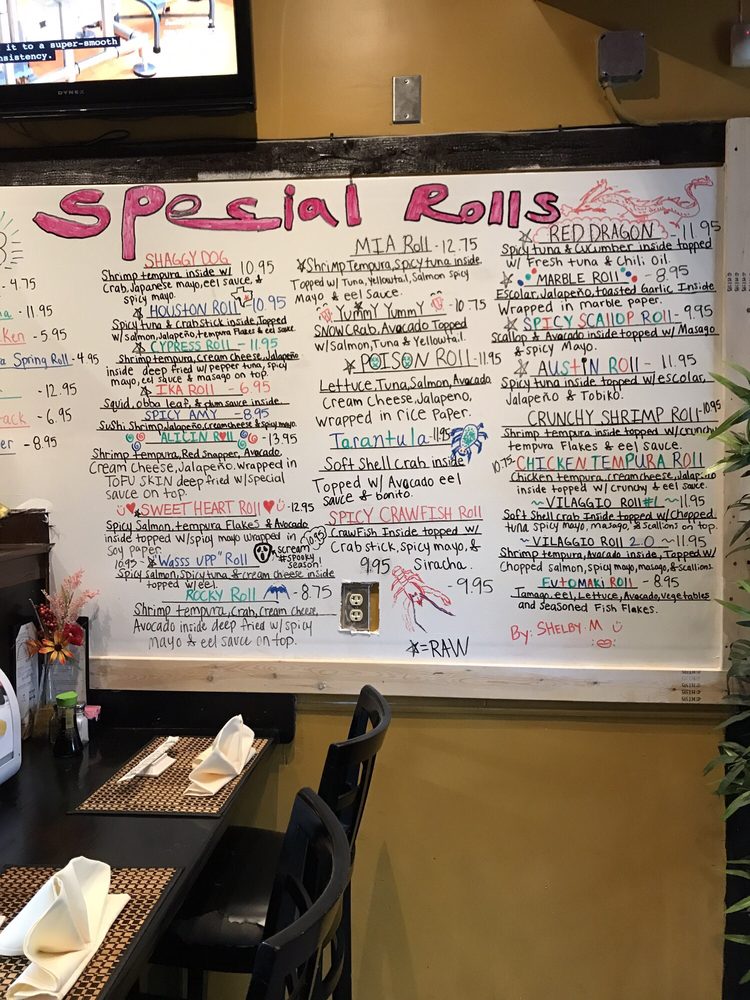 it to a super-smooth
nsistency.
DYNEX
Special Rolls
- 4.75
- 11.95
- 5.95
Spring Roll - 4.95
- 12.95
- 6.95
- 8.95
SHAGGY DOG
Shrimp tempura inside w/ 10.95
Crab, Japanese mayo, eel sauce, &
spicy mayo.
HOUSTON ROLL - 10.95
Spicy tuna & Crab stick inside, Topped
w/ Salmon, Jalapeño, tempura Flakes & eel sauce.
CYPRESS ROLL - 11.95
Shrimp tempura, Cream cheese, Jalapeño
inside deep fried w/ pepper tuna, spicy
mayo, eel sauce & masago on top.
IKA ROLL - 6.95
Squid, obba leaf, & plum sauce inside.
SPICY AMY - 8.95
Sushi Shrimp, Jalapeño, creamcheese & spicy mayo.
ALICIN ROLL - 13.95
Shrimp tempura, Red Snapper, Avocado
Cream cheese, Jalapeño. wrapped in
TOFU SKIN deep fried w/ special
sauce on top.
SWEET HEART ROLL - 12.95
Spicy Salmon, tempura Flakes & Avocado
inside topped w/ spicy mayo wrapped in
soy paper.
"Wasss UPP" Roll 10.95
scream
#spooky
season!
Spicy salmon, spicy tuna & cream cheese inside
topped w/ eel.
ROCKY ROLL - 8.75
Shrimp tempura, crab, Cream cheese,
Avocado inside deep fried w/ spicy
mayo & eel sauce on top.
MIA Roll - 12.75
Shrimp Tempura, Spicy tuna inside
Topped w/ Tuna, Yellowtail, Salmon Spicy
Mayo & eel Sauce.
YUMMY YUMMY - 10.75
SNOW CRAB, Avocado Topped
w/ Salmon, Tuna & Yellowtail.
POISON ROLL - 11.95
Lettuce, Tuna, Salmon, Avocado
Cream Cheese, Jalapeno,
wrapped in rice Paper.
Tarantula - 11.95
Soft Shell Crab inside
Topped w/ Avocado eel
sauce & bonito.
SPICY CRAWFISH ROLL
CrawFish Inside topped w/
Crab stick, spicy mayo, &
9.95 Siracha.
- 9.95
☆=RAW
RED DRAGON - 11.95
Spicy tuna & Cucumber inside topped
w/ Fresh tuna & Chili Oil.
MARBLE ROLL - 8.95
Escolar, Jalapeño, toasted Garlic Inside
Wrapped in marble paper.
SPICY SCALLOP ROLL - 9.95
Scallop & Avocado inside topped w/ Masago
& spicy Mayo.
AUSTIN ROLL - 11.95
Spicy tuna inside topped w/ escolar,
Jalapeño & Tobiko.
CRUNCHY SHRIMP ROLL - 10.95
Shrimp tempura inside topped w/ crunchy
tempura Flakes & eel sauce.
10.75 CHICKEN TEMPURA ROLL
Chicken tempura, creamcheese, Jalapeño
inside topped w/ crunchy & eel sauce.
~VILAGGIO ROLL #1 ~ 11.95
Soft Shell Crab Inside topped w/ Chopped
tuna spicy mayo, masago, & scallions on top.
~VILAGGIO ROLL 2.0 ~ 11.95
Shrimp tempura, Avocado inside, Topped w/
Chopped salmon, spicy mayo, masago, & scallions.
FUTOMAKI ROLL - 8.95
Tamago, eel, Lettuce, Avocado, Vegetables
and Seasoned Fish Flakes.
By: SHELBY. M